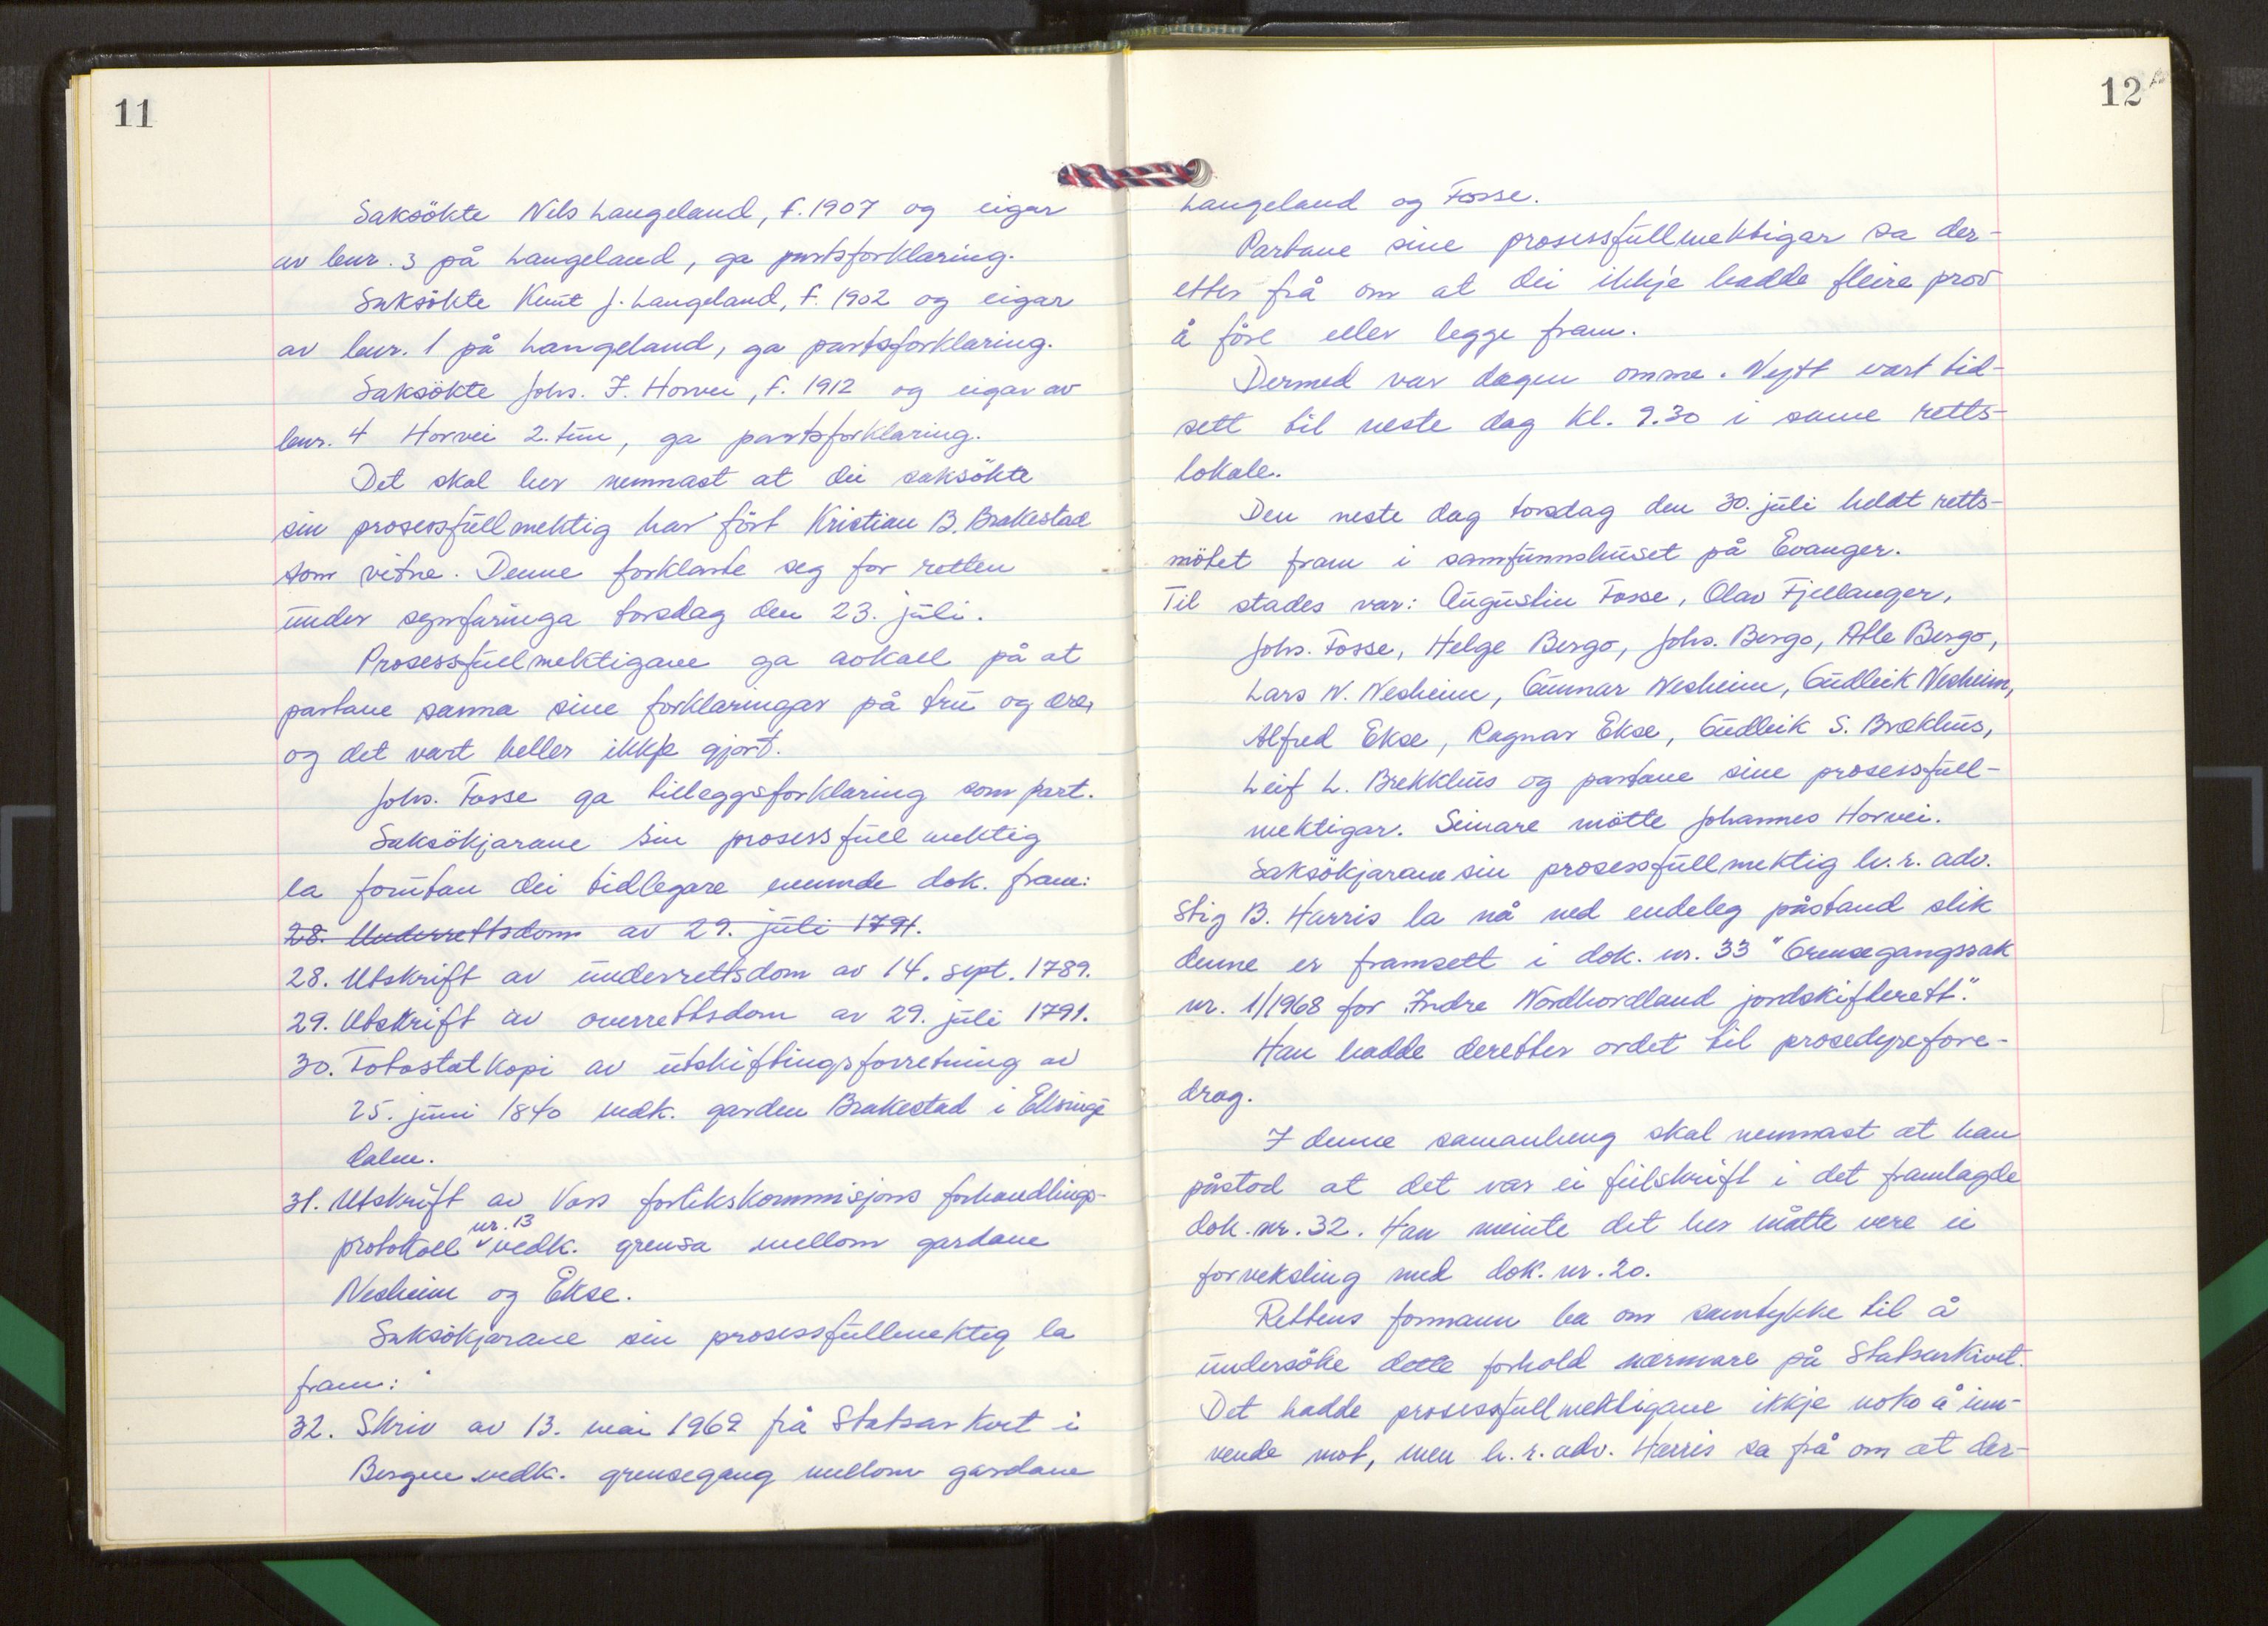 11
Saksökte Nils Langeland, f. 1907 og eigar
av bnr. 3 på Langeland, ga partsforklaring.
Saksökte Knut J. Langeland, f. 1902 og eigar
av bnr. 1 på Langeland, ga partsforklaring.
Saksökte Johs. I. Horvei, f. 1912 og eigar av
bnr. 4 Horvei 2. tun, ga partsforklaring.
Det skal her nemnast at dei saksökte
sin prosessfullmektig har fört Kristian B. Brakestad
som vitne. Denne forklarte seg for retten
under synfaringa torsdag den 23. juli.
Prosessfullmektigane ga avkall på at
partane sanna sine forklaringar på tru og ære,
og det vart heller ikkje gjort.
Johs. Fosse ga tilleggsforklaring som part.
Saksökjarane sin prosessfullmektig
la forutan dei tidlegare nemnde dok. fram:
28. Underrettsdom av 29. juli 1791.
28. Utskrift av underrettsdom av 14. sept. 1789.
29. Utskrift av overrettsdom av 29. juli 1791.
30. Fotostatkopi av utskiftingsforretning av
25. juni 1840 vedk. garden Brakestad i Eksinge
dalen.
31. Utskrift av Voss forlikskommisjons forhandlings-
nr. 13
protokoll vedk. grensa mellom gardane
Nesheim og Ekse.
Saksökjarane sin prosessfullmektig la
fram:
32. Skriv av 13. mai 1969 frå Statsarkivet i
Bergen vedk. grensegang mellom gardane
12
Langeland og Fosse.
Partane sine prosessfullmektigar sa der-
etter frå om at dei ikkje hadde fleire prov
å före eller legge fram.
Dermed var dagen omme. Nytt vart tid-
sett til neste dag kl. 9.30 i same retts-
lokale.
Den neste dag torsdag den 30. juli heldt retts-
mötet fram i samfunnshuset på Evanger.
Til stades var: Augustin Fosse, Olav Fjellanger,
Johs. Fosse, Helge Bergo, Johs. Bergo, Atle Bergo,
Lars N. Nesheim, Gunnar Nesheim, Gudleik Nesheim,
Alfred Ekse, Ragnar Ekse, Gudleik S. Brekhus,
Leif L. Brekkhus og partane sine prosessfull-
mektigar. Seinare mötte Johannes Horvei.
Saksökjarane sin prosessfullmektig h.r. adv.
Stig B. Harris la nå ned endeleg påstand slik
denne er framsett i dok. nr. 33 "Grensegangssak
nr. 1/1968 for Indre Nordhordland jordskifterett".
Han hadde deretter ordet til prosedyrefore-
drag.
I denne samanheng skal nemnast at han
påstod at det var ei feilskrift i det framlagde
dok. nr. 32. Han meinte det her måtte vere ei
forveksling med dok. nr. 20.
Rettens formann ba om samtykke til å
undersöke dette forhold nærmare på Statsarkivet.
Det hadde prosessfullmektigane ikkje noko å inn-
vende mot, men h.r. adv. Harris sa frå om at der-